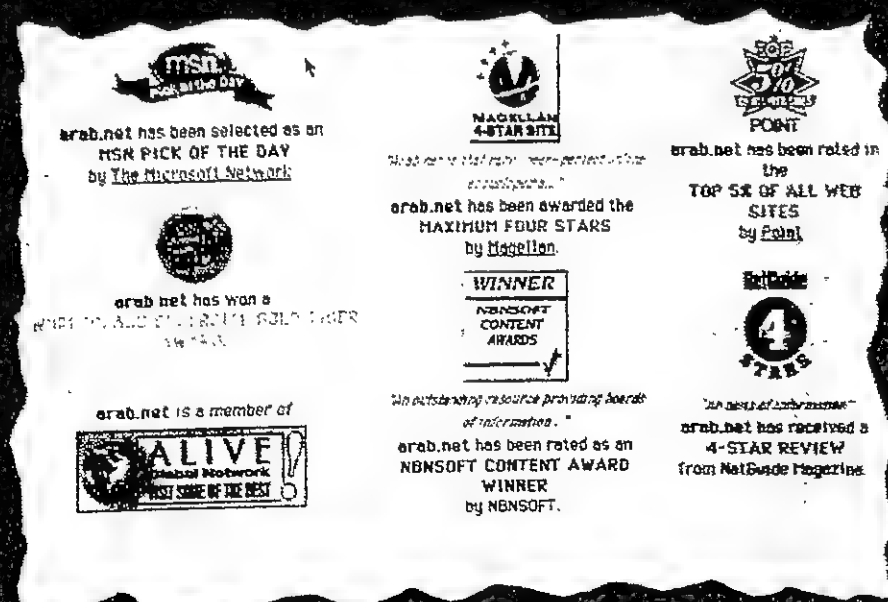 msn.
Pick of the Day
arab.net has been selected as an
MSN PICK OF THE DAY
by The Microsoft Network
arab.net has won a
GOLD
arab.net is a member of
ALIVE!
Global Network
JUST SOME OF THE BEST
MAGELLAN
4-STAR SITE
arab.net has been awarded the
MAXIMUM FOUR STARS
by Magellan.
WINNER
NBNSOFT
CONTENT
AWARDS
"An outstanding resource providing hoards
of information."
arab.net has been rated as an
NBNSOFT CONTENT AWARD
WINNER
by NBNSOFT.
TOP
5%
POINT
arab.net has been rated in
the
TOP 5% OF ALL WEB
SITES
by Point
NetGuide
4
STARS
of information"
arab.net has received a
4-STAR REVIEW
from NetGuide Magazine.